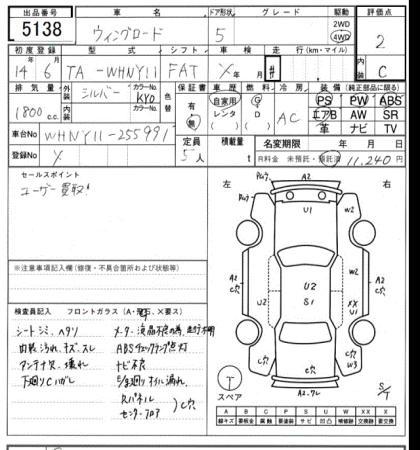 出品番号 車名 ドア形状 グレード 駆動 評価点
5138 ウィングロード 5 2WD 4WD 2
初度登録 型式 シフト 車検 走行(km・マイル) 内装
14年6月 TA-WHNY11 FAT X年 月 # C
排気量 外装 シルバー カラーNo. KYO 色替 保証書 車歴 燃料 冷房 装備(純正部品に限る)
1800 c.c. 内装 カラーNo. 有 無 自家用 レンタ G D AC PS PW ABS
エアB AW SR
革 ナビ TV
車台No WHNY11-255991 定員 積載量 名変期限 年 月 日
登録No X 5人 t R料金 未預託・預託済 11,240円
セールスポイント
ユーザー買取!
※注意事項記入欄(修復・不具合箇所および状態等)
検査員記入 フロントガラス(A・飛石、X要ス)
シートシミ、ヘタリ
内装汚れ、キズ、スレ ABSチェックランプ点灯
アンテナ欠、壊れ ナビ不良
下廻りCハガレ
Rパネル
センターフロア
C穴
左 右
A2
U1
W2
W2
A2
C穴
U2
U2
S1
XX
U1
A2
C穴
C穴
W3
C穴
A2.ワレ
S/T
スペア
A B C P S U W X XX
線キズ 要板金 腐触 要塗装 サビ 凹凸 補修跡 要交換 交換跡